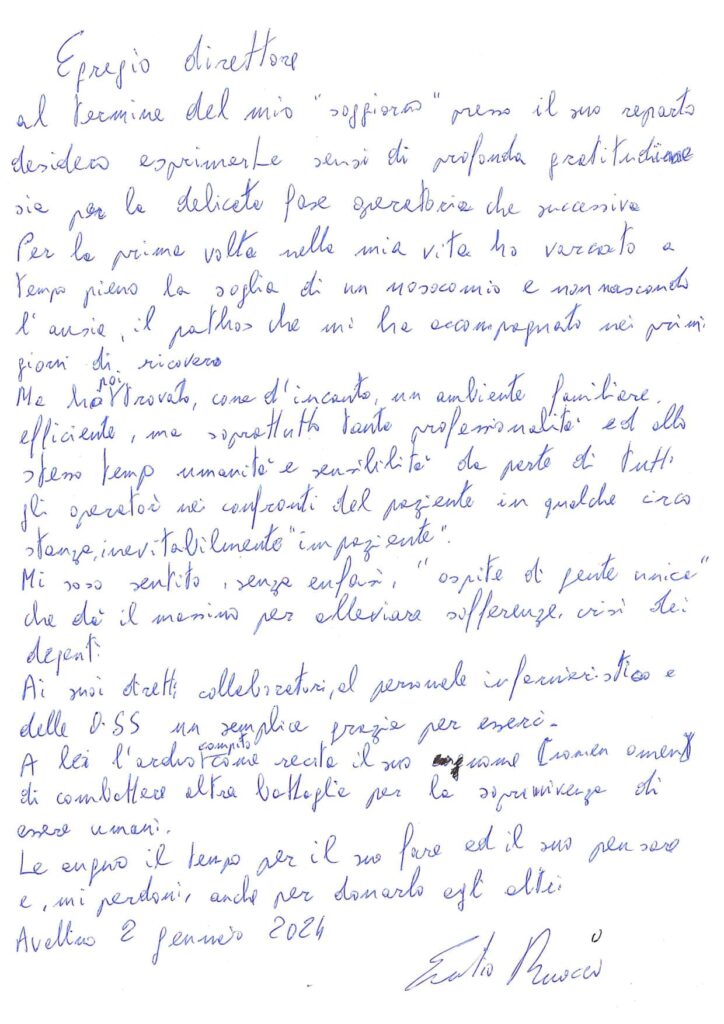 Egregio direttore
al termine del mio "soggiorno" presso il suo reparto
desidero esprimerLe sensi di profonda gratitudine
sia per la delicata fase operatoria che successiva
Per la prima volta nella mia vita ho varcato a
tempo pieno la soglia di un nosocomio e non nascondo
l'ansia, il pathos che mi ha accompagnato nei primi
giorni di ricovero
Ma ho poi trovato, come d'incanto, un ambiente familiare,
efficiente, ma soprattutto tanta professionalità ed allo
stesso temp umanità e sensibilità da parte di tutti
gli operatori nei confronti del paziente in qualche circo
stanza, inevitabilmente "impaziente".
Mi sono sentito, senza enfasi, "ospite di gente unica"
che dà il massimo per alleviare sofferenze, crisi dei
degenti
Ai suoi diretti collaboratori, al personale infermieristico e
delle O.SS un semplice grazie per esserci.
A lei l'arduo compito come recita il suo cognome (nomen omen)
di combattere altra battaglia per la sopravvivenza di
essere umani.
Le auguro il tempo per il suo fare ed il suo pensare
e, mi perdoni, anche per donarlo agli altri
Avellino 2 gennaio 2024